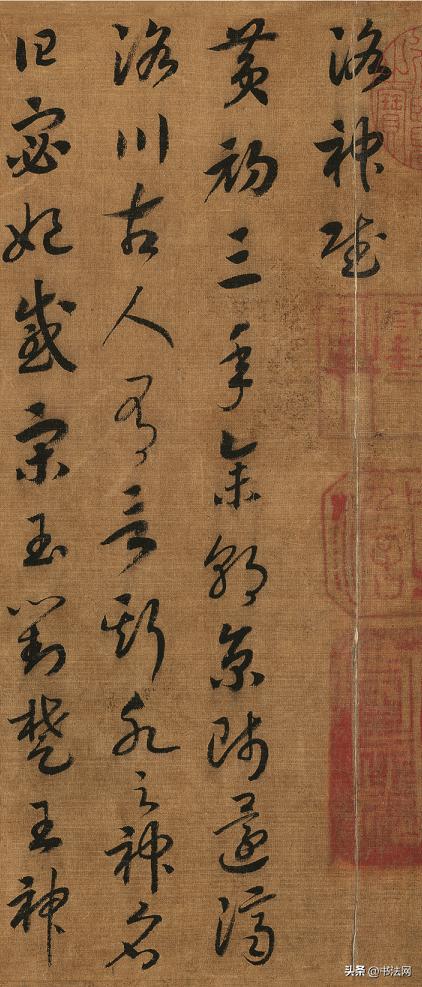 洛神賦
黄初三年余朝京師還濟
洛川古人有言斯水之神名
曰宓妃感宋玉對楚王神
头条 @书法网